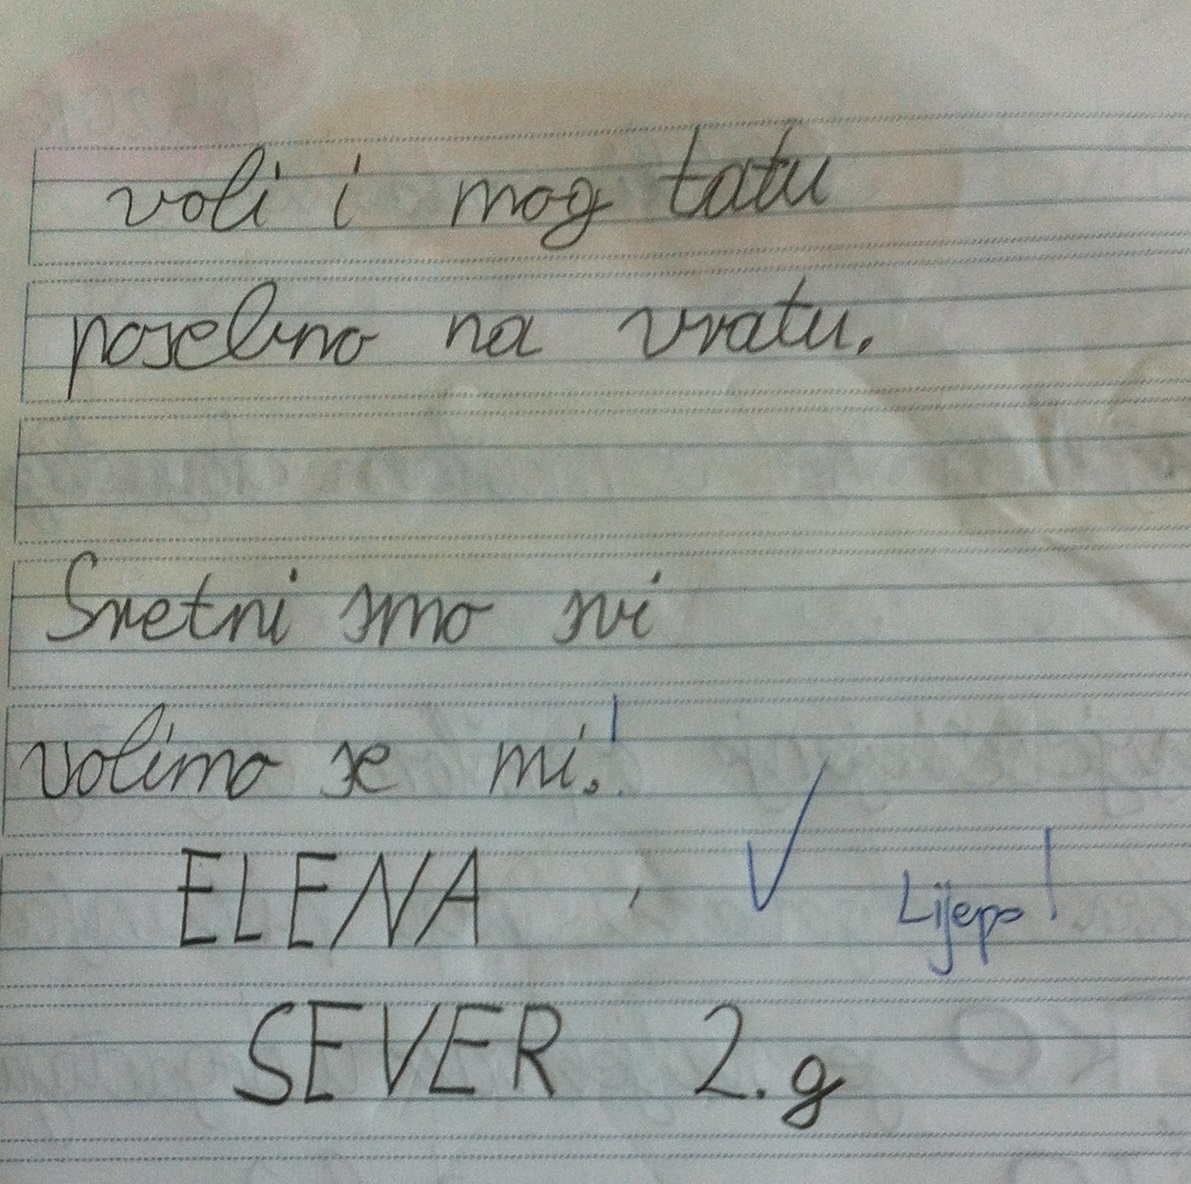 voli i mog tatu
posebno na vratu.
Sretni smo svi
volimo se mi.!
ELENA
Lijepo!
SEVER 2.g